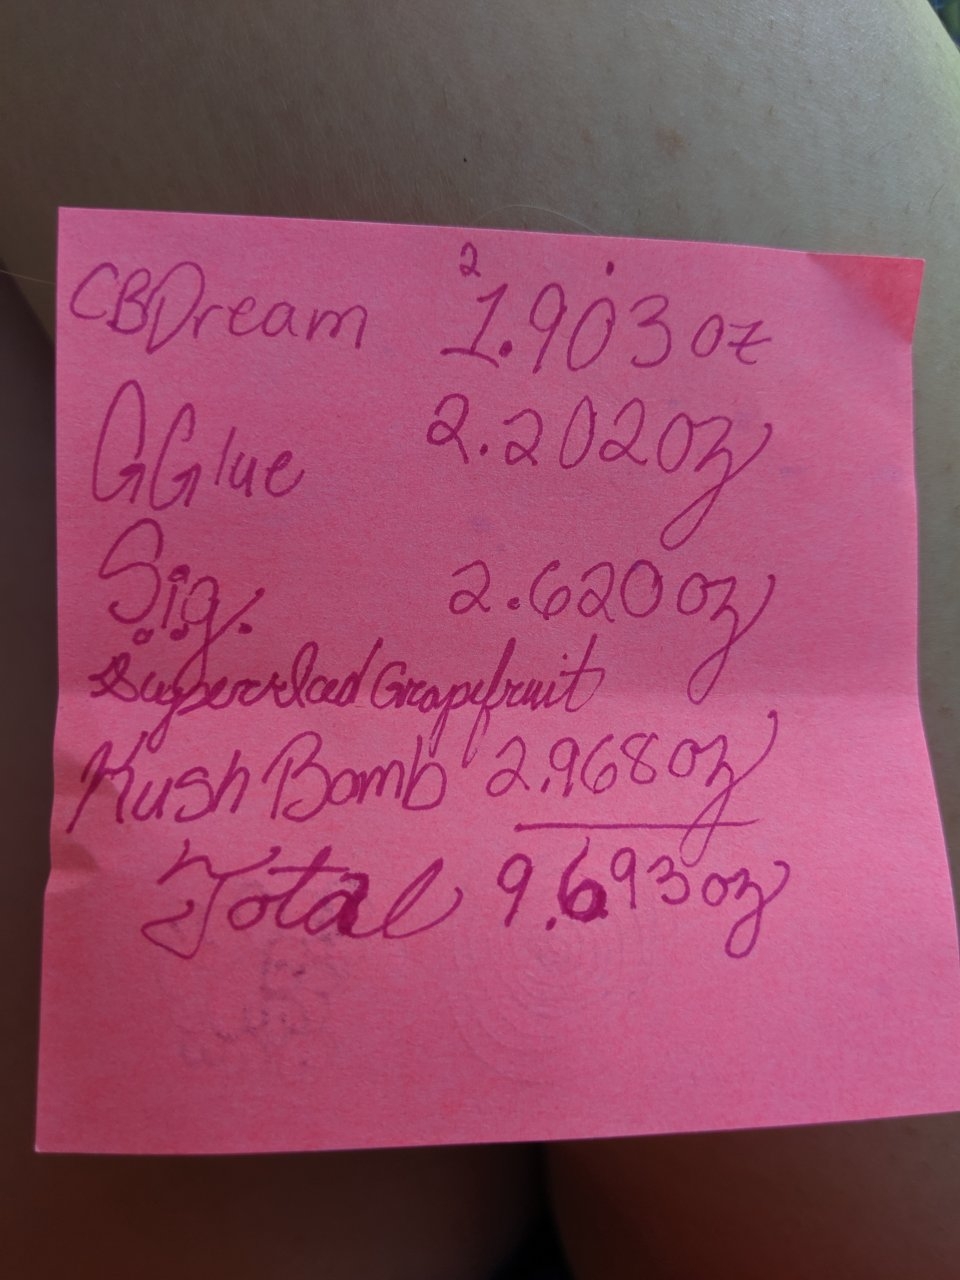 2 .
CBDream 1.903 oz
GGlue 2.202oz
Sig. 2.620oz
Grapefruit
Kush Bomb 2.968oz
Total 9.693oz